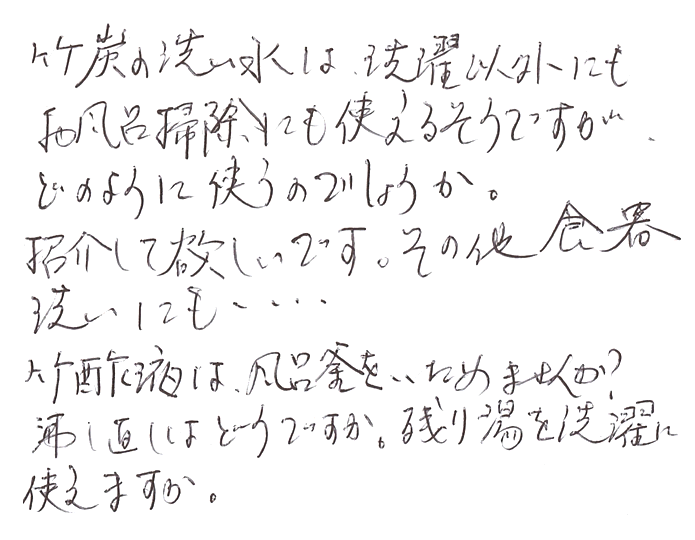 竹炭の洗い水は、洗濯以外にも
お風呂掃除、にも使えるそうですが、
どのように使うのでしょうか。
紹介して欲しいです。その他食器
洗いにも・・・・
竹酢液は、風呂釜をいためませんか?
沸し直しはどうですか。残り湯を洗濯に
使えますか。